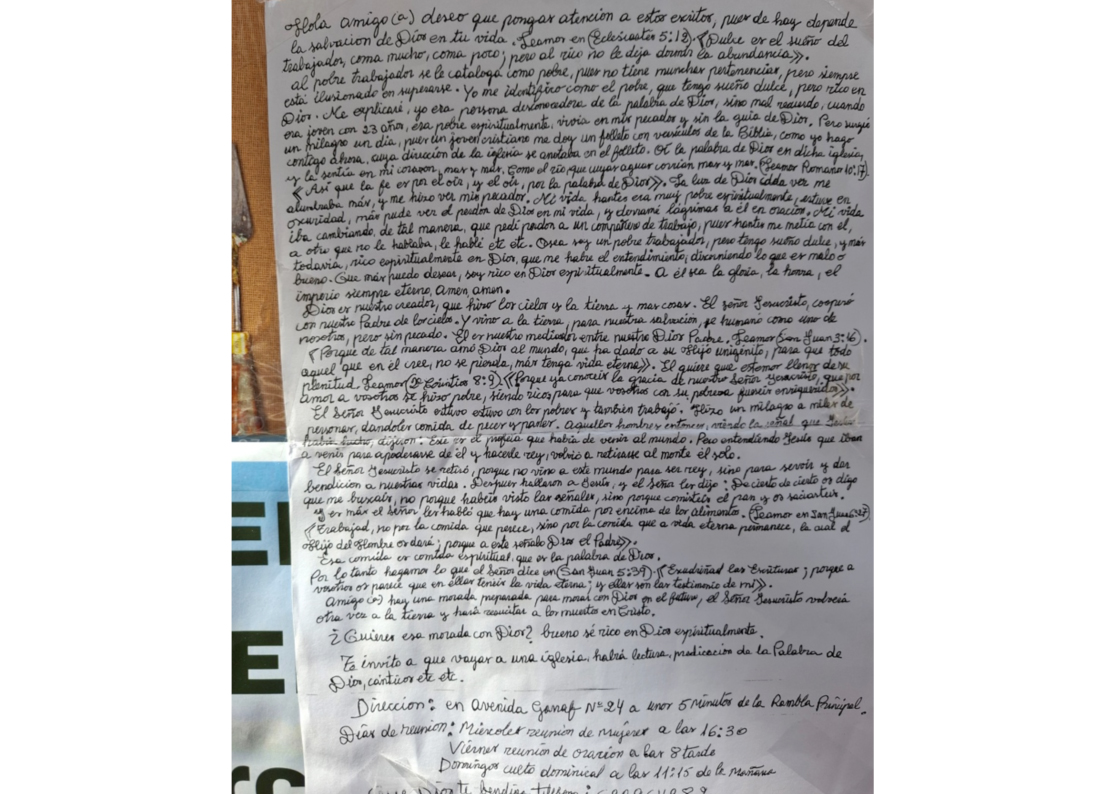 Hola amigo(a) deseo que pongas atencion a estos escritos, pues de hay depende
la salvacion de Dios en tu vida. Leamos en (Eclesiastes 5:12). «Dulce es el sueño del
trabajador, coma mucho, coma poco; pero al rico no le deja dormir la abundancia».
al pobre trabajador se le cataloga como pobre, pues no tiene munchas pertenencias, pero siempre
está ilusionado en superarse. Yo me identifico como el pobre, que tengo sueño dulce, pero rico en
Dios. Me explicaré, yo era persona desconocedora de la palabra de Dios, sino mal recuerdo, cuando
era joven con 23 años, era pobre espiritualmente, vivia en mis pecados y sin la guia de Dios. Pero surgió
un milagro un dia, pues un joven cristiano me doy un folleto con versiculos de la Biblia, como yo hago
contigo ahora, cuya direccion de la iglesia se anotaba en el folleto. Oi la palabra de Dios en dicha iglesia,
y la sentia en mi corazon, mas y más. Como el rio, que cuyas aguas corrian mas y mas. (Leamos Romanos 10:17).
« Asi que la fe es por el oir, y el oir, por la palabra de Dios». La luz de Dios cada vez me
alumbraba más, y me hizo ver mis pecados. Mi vida hantes era muy pobre espiritualmente, estuve en
oscuridad, más pude ver el perdon de Dios en mi vida, y derramé lagrimas a él en oracion. Mi vida
iba cambiando, de tal manera, que pedi perdon a un compañero de trabajo, pues hantes me metia con él,
a otro que no le hablaba, le hablé etc etc. Osea soy un pobre trabajador, pero tengo sueño dulce, y más
todavia, rico espiritualmente en Dios, que me habre el entendimiento, discerniendo lo que es malo o
bueno. Que más puedo desear, soy rico en Dios espiritualmente. A él sea la gloria, la honra, el
imperio siempre eterno, amen, amen.
Dios es nuestro creador, que hizo los cielos y la tierra y mas cosas. El señor Jesucristo, cooperó
con nuestro Padre de los cielos. Y vino a la tierra, para nuestra salvación, se humanó como uno de
nosotros, pero sin pecado. El es nuestro mediador entre nuestro Dios Padre. Leamos (San Juan 3:16).
« Porque de tal manera amó Dios al mundo, que ha dado a su Hijo unigénito, para que todo
aquel que en el cree, no se pierda, más tenga vida eterna». El quiere que estemos llenos de su
plenitud. Leamos (2ª Corintios 8:9). «Porque ya conoceis la gracia de nuestro Señor Jesucristo, que por
amor a vosotros se hizo pobre, siendo rico; para que vosotros con su pobreza fueseis enriquecidos».
El Señor Jesucristo estuvo estuvo con los pobres y tambien trabajó. Hizo un milagro a miles de
personas, dandoles comida de peces y panes. Aquellos hombres entonces, viendo la señal que Jesús
habia hecho, dijeron: Este es el profeta que habia de venir al mundo. Pero entendiendo Jesús que iban
a venir para apoderarse de él y hacerle rey, volvió a retirarse al monte él solo.
El Señor Jesucristo se retiró, porque no vino a este mundo para ser rey, sino para servir y dar
bendicion a nuestras vidas. Despues hallaron a Jesús, y el señor les dijo: De cierto de cierto os digo
que me buscais, no porque habéis visto las señales, sino porque comisteis el pan y os saciasteis.
Y es más el señor les habló que hay una comida por encima de los alimentos. (Leamos en San Juan 6:27)
«Trabajad, no por la comida que perece, sino por la comida que a vida eterna permanece, la cual el
Hijo del Hombre os dará; porque a este señaló Dios el Padre».
Esa comida es comida espiritual, que es la palabra de Dios.
Por lo tanto hagamos lo que el Señor dice en (San Juan 5:39). « Escudriñad las Escrituras; porque a
vosotros os parece que en ellas teneis la vida eterna; y ellas son las testimonio de mi».
Amigo(a) hay una morada preparada para morar con Dios en el futuro, el Señor Jesucristo volvera
otra vez a la tierra y hará resucitar a los muertos en Cristo.
¿Quieres esa morada con Dios? bueno sé rico en Dios espiritualmente.
Te invito a que vayas a una iglesia, habrá lectura, predicacion de la Palabra de
Dios, cánticos etc etc.
Direccion: en Avenida Ganaf Nº 24 a unos 5 minutos de la Rambla Prinipal.
Dias de reunion: Miercoles reunion de mujeres a las 16:30
Viernes reunion de oracion a las 8 tarde
Domingos culto dominical a las 11:15 de la mañana
Dios te bendiga
E
E